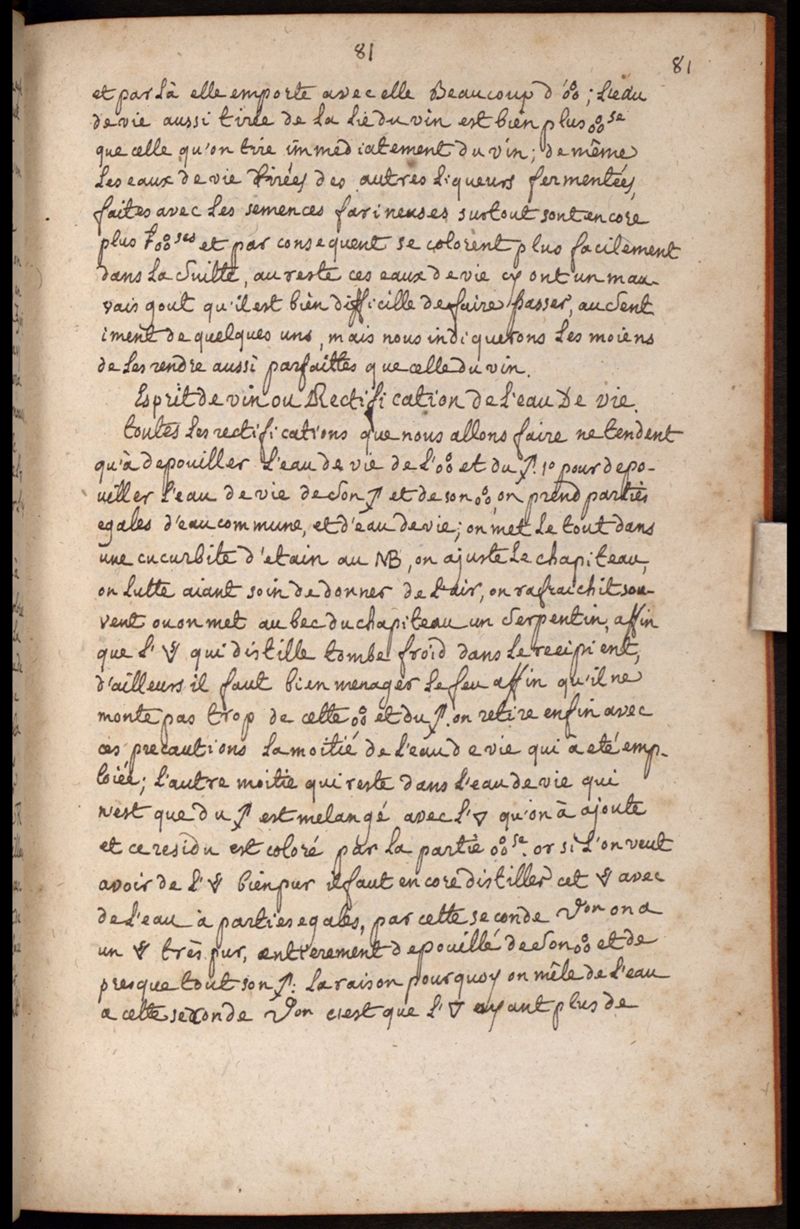 81
81
et par là elle emporte avec elle Beaucoup d'o°o; L'eau
de vie aussi tirée de La Lie du vin est bien plus o°o se
que celle qu'on tire immediatement du vin; de même
Les eaux de vie tirées des autres Liqueurs fermentées,
faites avec Les semences farineuses surtout sont encore
plus o°o ses et par consequent se colorent plus facilement
dans La Suitte, au reste ces eaux de vie cy ont un mau
vais gout qu'il est bien difficille de faire passer, au Sent
iment de quelques uns, mais nous indiquerons Les moiens
de Les rendre aussi parfaittes que celle du vin.
Esprit de vin ou Rectification de L'eau De vie.
toutes Les rectifications que nous allons faire ne tendent
qu'à depouiller L'eau de vie de L'o°o et du 🜍. 1° pour depo-
uiller L'eau de vie de Son 🜍 et de son o°o, on prend parties
egales d'eau commune, et d'eau de vie; on met Le tout dans
une cucurbite d'etain au MB, on ajuste Le chapiteau,
on Lutte aiant soin de donner de L'air, on rafraichit sou-
vent ou on met au bec du chapiteau un Serpentin, affin
que L' 🜈 qui distille tombe froid dans Le recipient,
d'ailleurs il faut bien menager Le feu affin qu'il ne
monte pas trop de cette o°o et du 🜍. on retire enfin avec
ces precautions La moitié de L'eau de vie qui à eté emp-
loiée; L'autre moitie qui reste dans L'eau de vie qui
n'est que du 🜍 est melangé avec L'🜄 qu'on à ajoute
et ce residu est coloré par La partie o°o se. or si L'on veut
avoir de L'🜈 bien pur il faut encore distiller cet 🜈 avec
de L'eau à parties egales, par cette seconde Don on a
un 🜈 très pur, entierement depouillé de Son o°o et de
presque tout son 🜍. La raison pourquoy on mêle de L'eau
a cette seconde Don c'est que L'🜄 ayant plus de